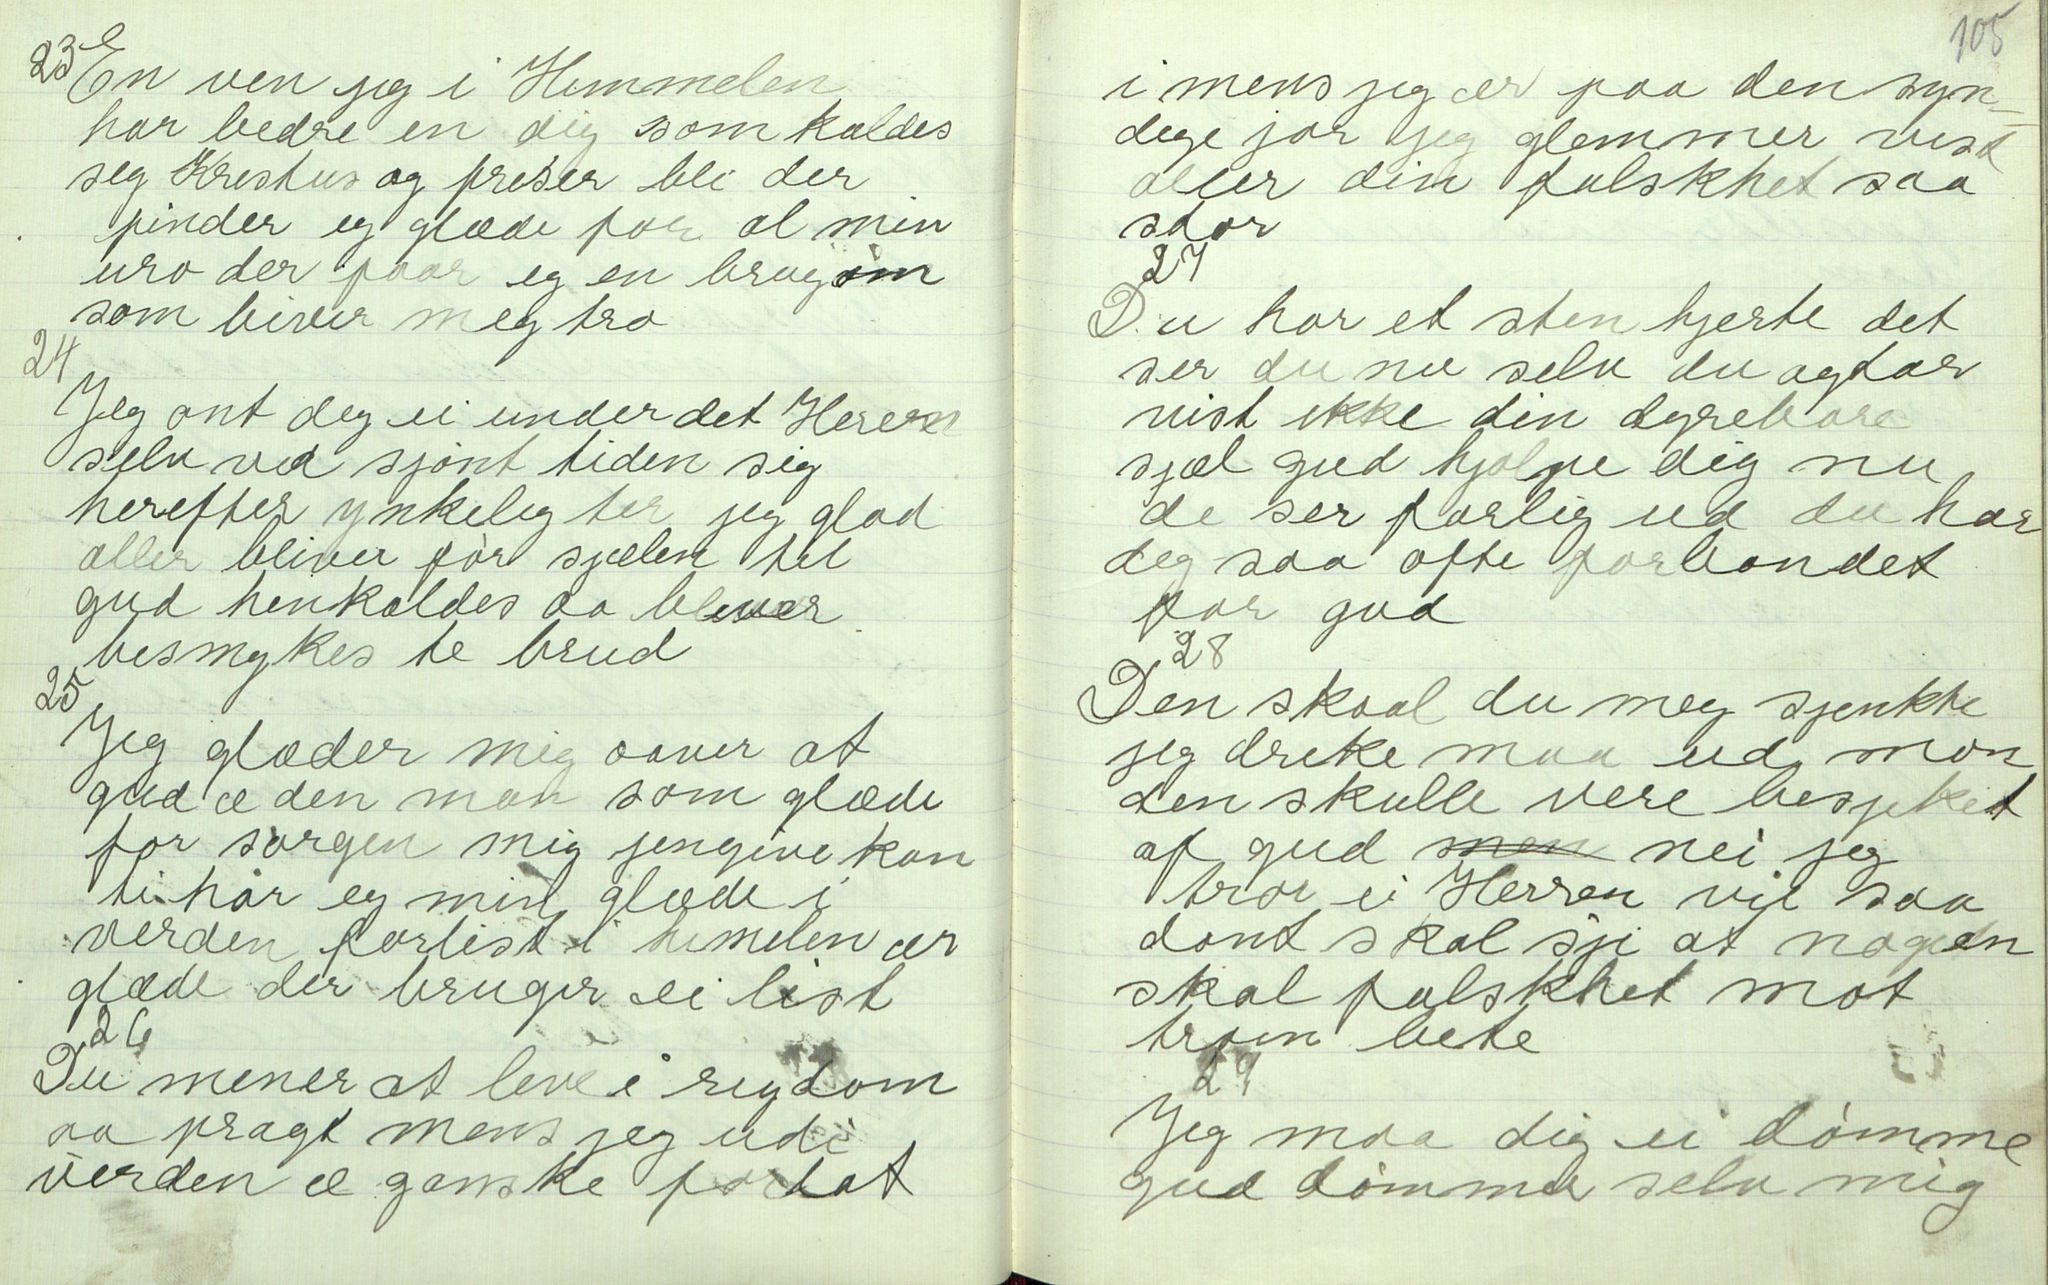 23
En ven jeg i Himmelen
har bedre en dig som kaldes
seg Krestus og freser bli der
finder eg glæde for al min
uro der faar eg en brugom
som biver meg tro
24
Jeg ont deg ei under det Hereren
selv ved sjønt tiden sig
herefter ynkelig ter jeg glad
aller bliver før sjælen tel
gud henkaldes aa blever
besmykes te brud
25
Jeg glæder mig aaver at
gud æ den man som glæde
for sorgen mig jengive kan
ti har eg min glæde i
verden forlist i himelen ær
glæde der bruger ei list
26
Du mener at leve i regdom
aa pragt mens jeg udi
verden æ ganske forlat
105
i mens jeg ær paa den syn-
dige jor jeg glemmer vist
aller din falskhet saa
stor
27
Du har et sten hjerte det
ser du nu selv du agtar
vist ikke din dyrebare
sjæl gud hjælpe dig nu
de ser farlig ud du har
deg saa ofte forbandet
for gud
28
Den skaal du meg sjenkte
jeg dreke maa ud mon
den skulle vere besjeket
af gud men nei jeg
tror ei Herren vil saa
dant skal sje at nogen
skal falskhet mot
troen bete
29
Jeg maa dig ei dømme
gud dømmer selv mig